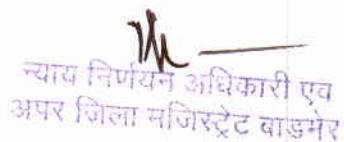 न्याय निर्णयन अधिकारी एव
अपर जिला मजिस्ट्रेट बाडमेर